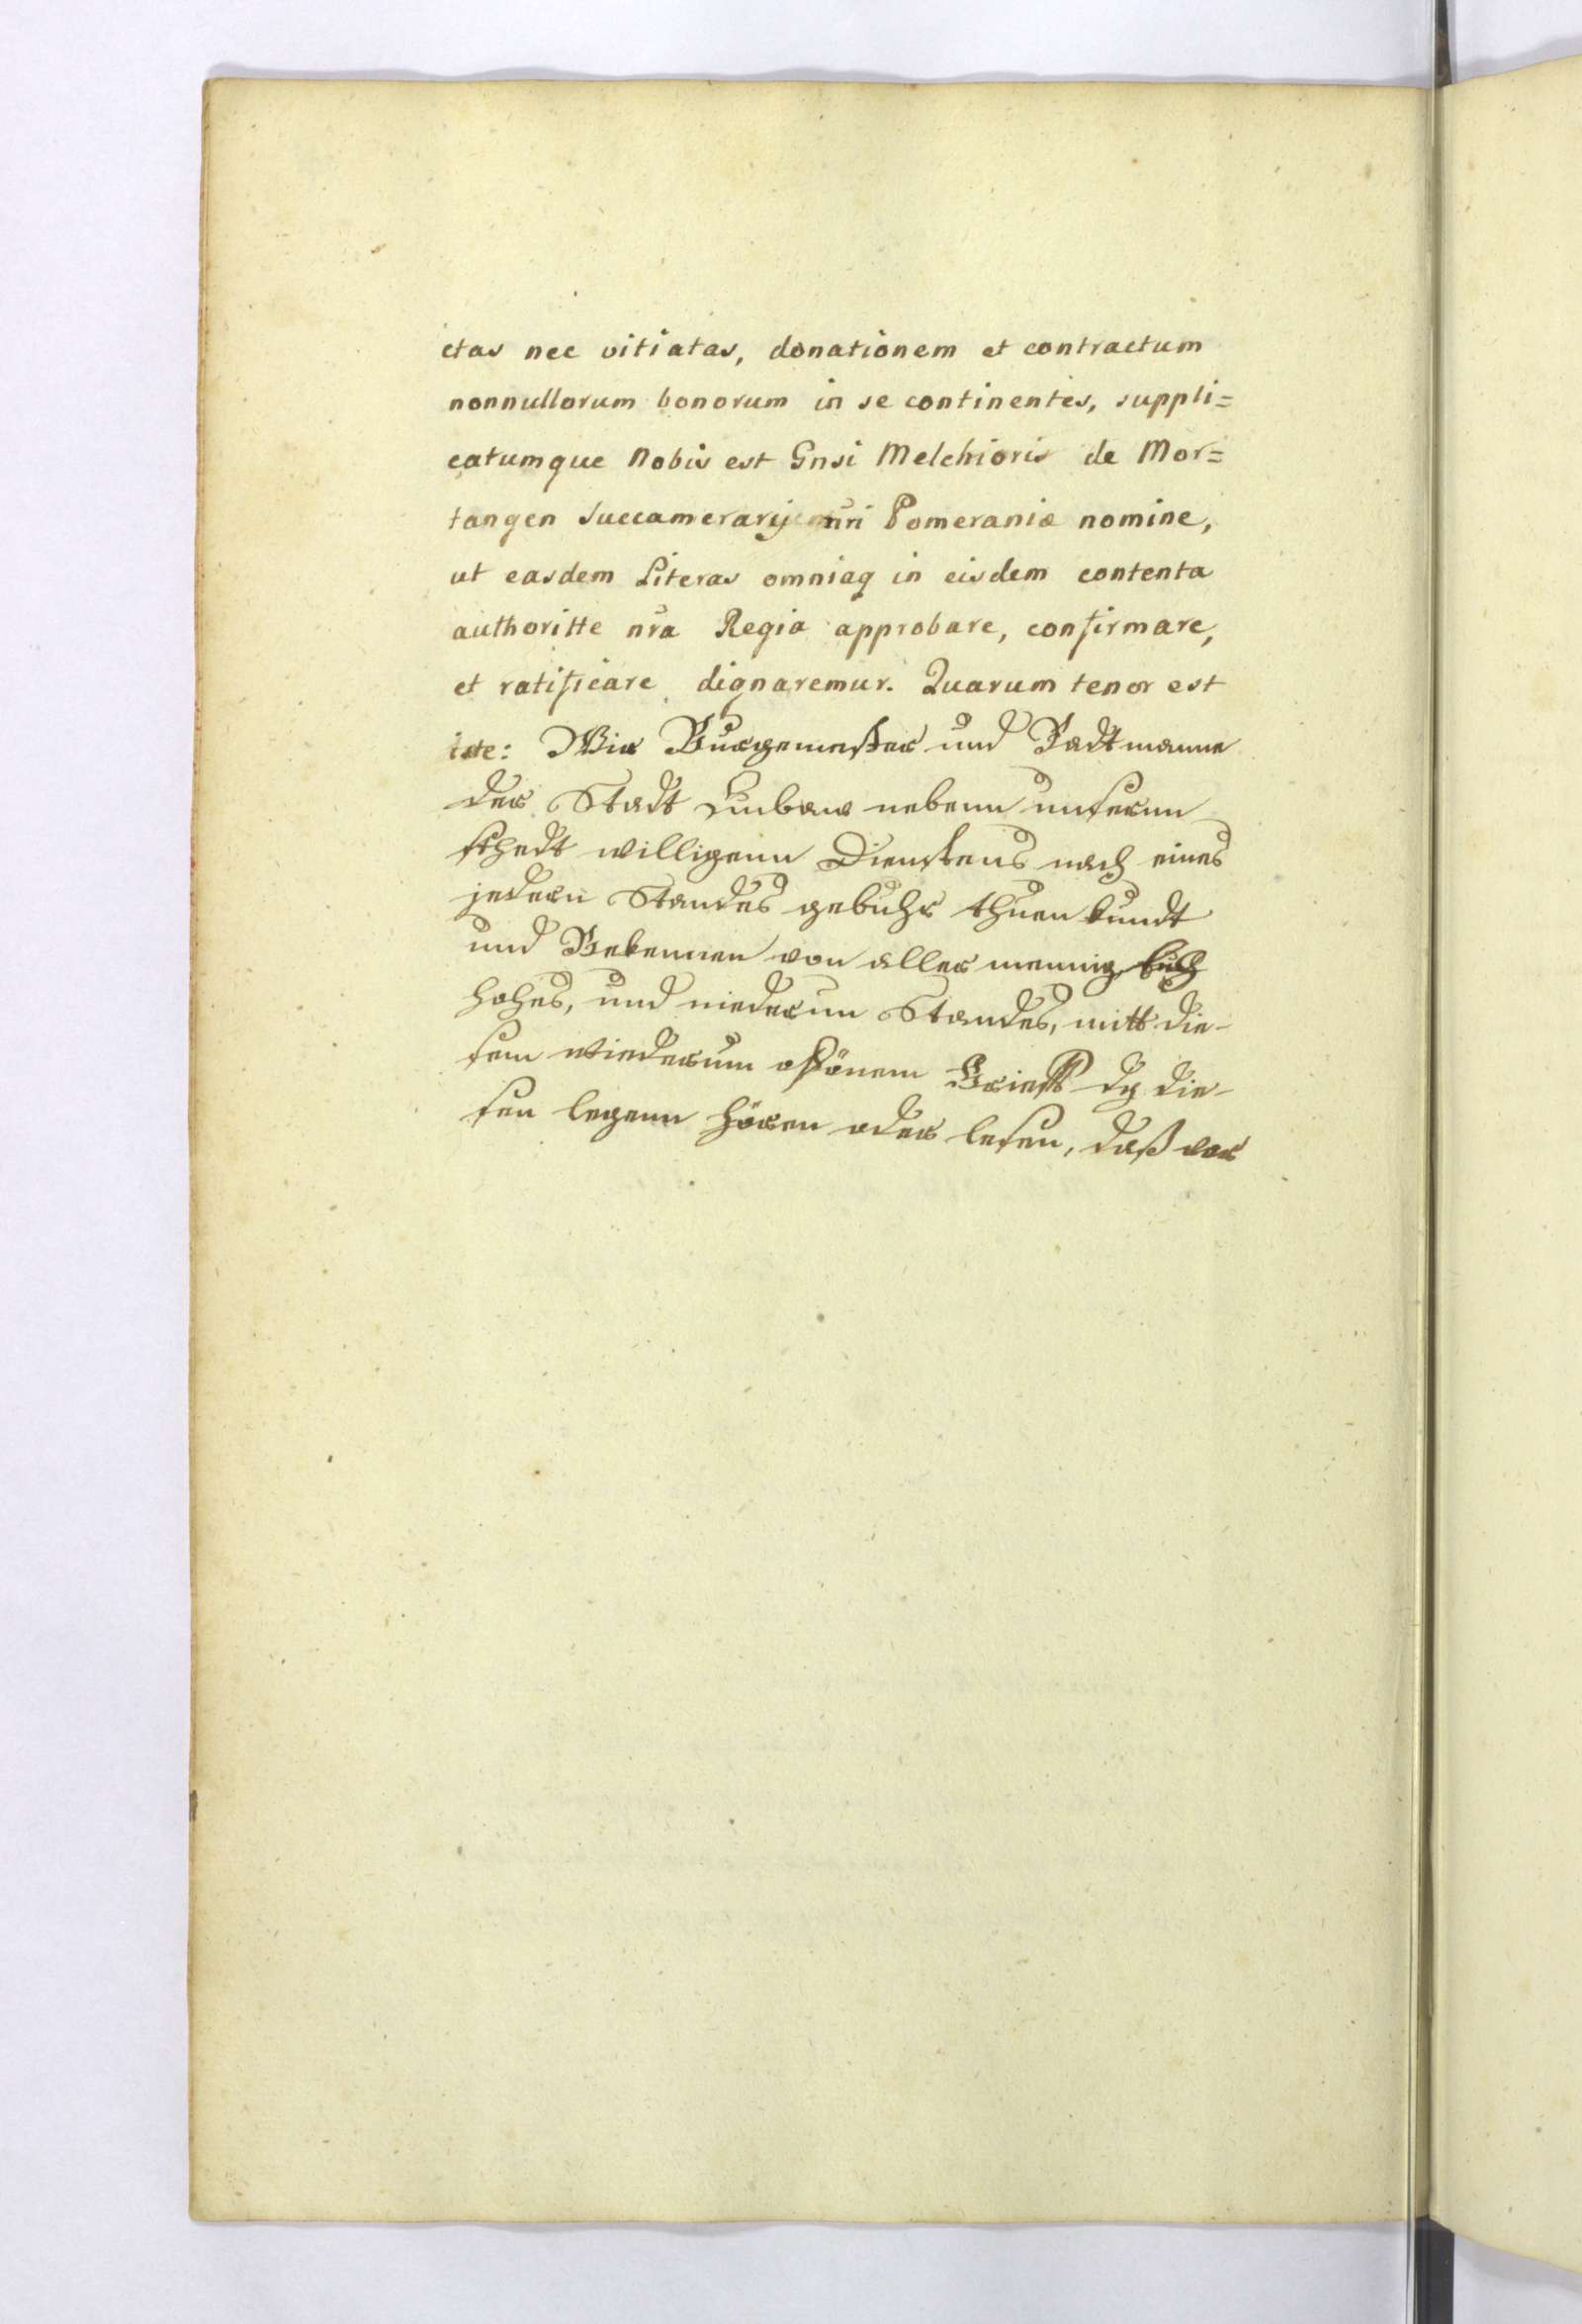 ctas nec vitiatas, donationem et contractum
nonnullorum bonorum in se continentes, suppli=
catumque Nobis est Gnsi Melchioris de Mor=
tangen Succamerarij nri Pomeraniæ nomine,
ut easdem Literas omniaq in eisdem contenta
authoritte nra Regia approbare, confirmare,
et ratificare dignaremur. Quarum tenor est
iste: Wir Burgemester und Radtmanne
der Stadt Lubaw nebenn unsernn
sthedt willigenn Dienstens nach eines
jedern Standes gebuhr thuen kundt
und Bekennen von aller mennig lich
hohes, und niederun Standes, mitt die-
sem wiederum offönem Brieff die-
sen legenn hören oder lesen, daß vor